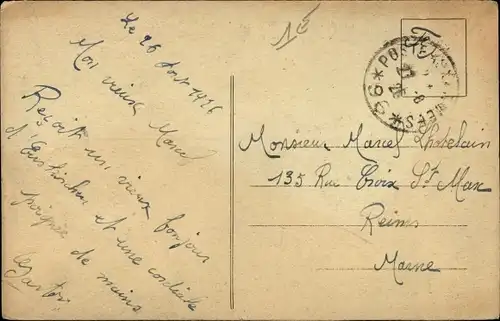 Le 26 Aout 1926
Mon vieux Marcel
Reçoit un vieux bonjour
d' et une cordiale
poignée de mains
Gaston
1 €
F M
* POSTE * 96 *
Monsieur Marcel Chatelain
135 Rue Croix St Marc
Reims
Marne